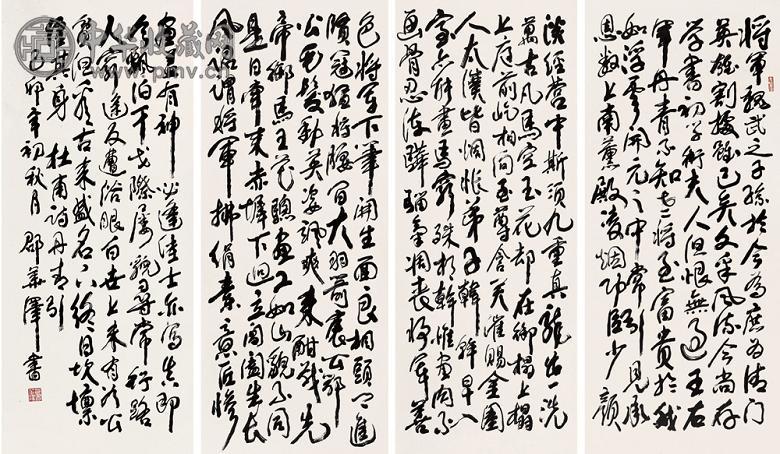 將軍魏武之子孫於今為庶為清門
英雄割據雖已矣文采風流今尚存
學書初學衛夫人但恨無過王右
軍丹青不知老將至富貴於我
如浮雲開元之中常引見承
恩數上南薰殿凌烟功臣少顏
色將軍下筆開生面良相頭上進
賢冠猛將腰間大羽箭褒公鄂
公毛髮動英姿颯爽來酣戰先
帝御馬玉花驄畫工如山貌不同
是日牽來赤墀下迥立閶闔生長
風詔謂將軍拂絹素意匠慘
淡經營中斯須九重真龍出一洗
萬古凡馬空玉花却在御榻上榻
上庭前屹相向至尊含笑催賜金圉
人太僕皆惆悵弟子韓幹早入
室亦能畫馬窮殊相幹惟畫肉不
畫骨忍使驊騮氣凋喪將軍善
畫蓋有神必逢佳士亦寫真即
今飄泊干戈際屢貌尋常行路
人窮途反遭俗眼白世上未有如公
貧但看古來盛名下終日坎壈
纏其身 杜甫詩丹青引
己卯年初秋月 邵華澤書
中华收藏网
pmv.cn